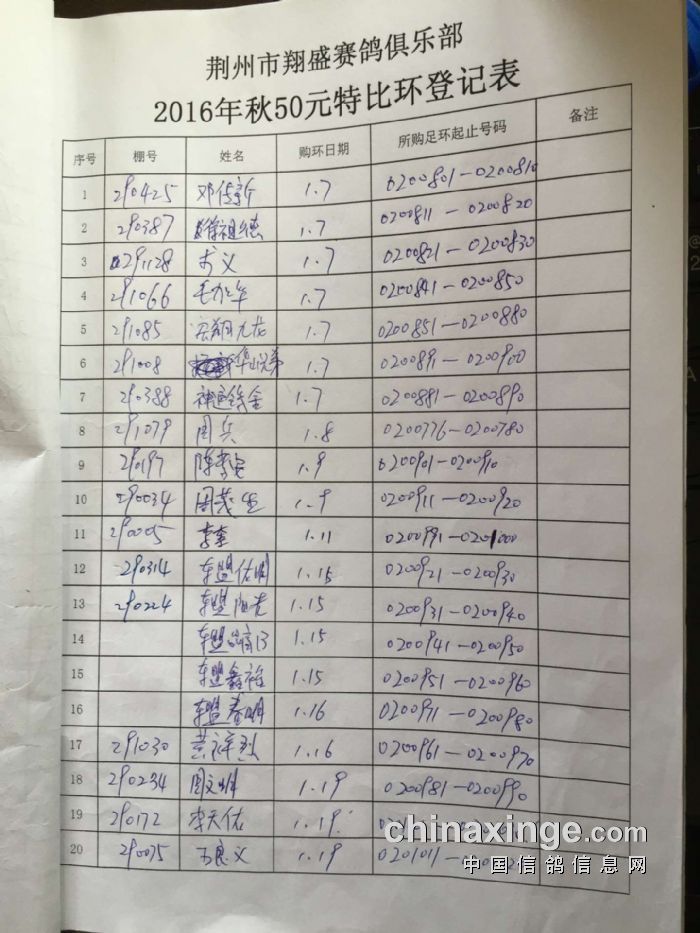 荆州市翔盛赛鸽俱乐部
2016年秋50元特比环登记表
序号 棚号 姓名 购环日期 所购足环起止号码 备注
1 290425 邓传新 1.7 0200801-0200810
2 290387 祖德 1.7 0200811-0200820
3 291128 义 1.7 0200821-0200830
4 291066 毛 年 1.7 0200841-0200850
5 291085 九龙 1.7 0200851-0200880
6 291008 兄弟 1.7 0200891-0200900
7 290388 神通 金 1.7 0200881-0200890
8 291079 周兵 1.8 0200776-0200780
9 290197 陈 1.9 0200901-0200910
10 290034 周茂生 1.9 0200911-0200920
11 290005 李奎 1.11 0200991-0201000
12 290314 车盟佑明 1.15 0200921-0200930
13 290224 车盟阳光 1.15 0200931-0200940
14 车盟 1.15 0200941-0200950
15 车盟鑫裕 1.15 0200951-0200960
16 车盟春明 1.16 0200971-0200980
17 291030 黄祥烈 1.16 0200961-0200970
18 290234 周文明 1.19 0200981-0200990
19 290172 李天佑 1.19
20 290075 万良义 1.19 0201011-
chinaxinge.com
中国信鸽信息网